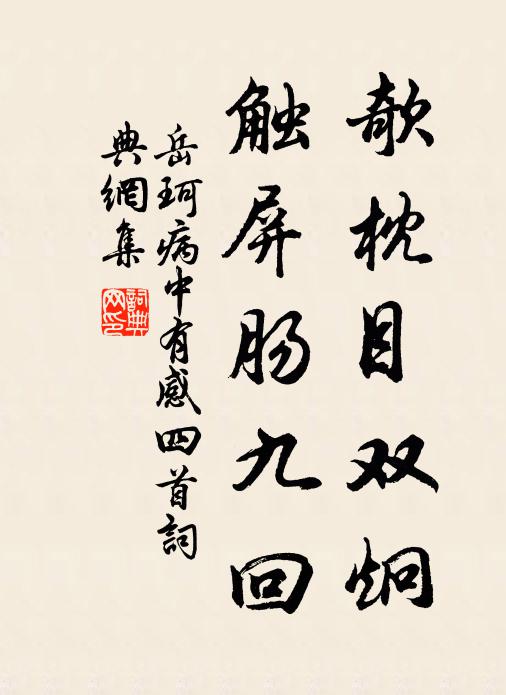 欹枕目双炯
触屏肠九回
岳珂病中有感四首詞
典網集
詞典
网印